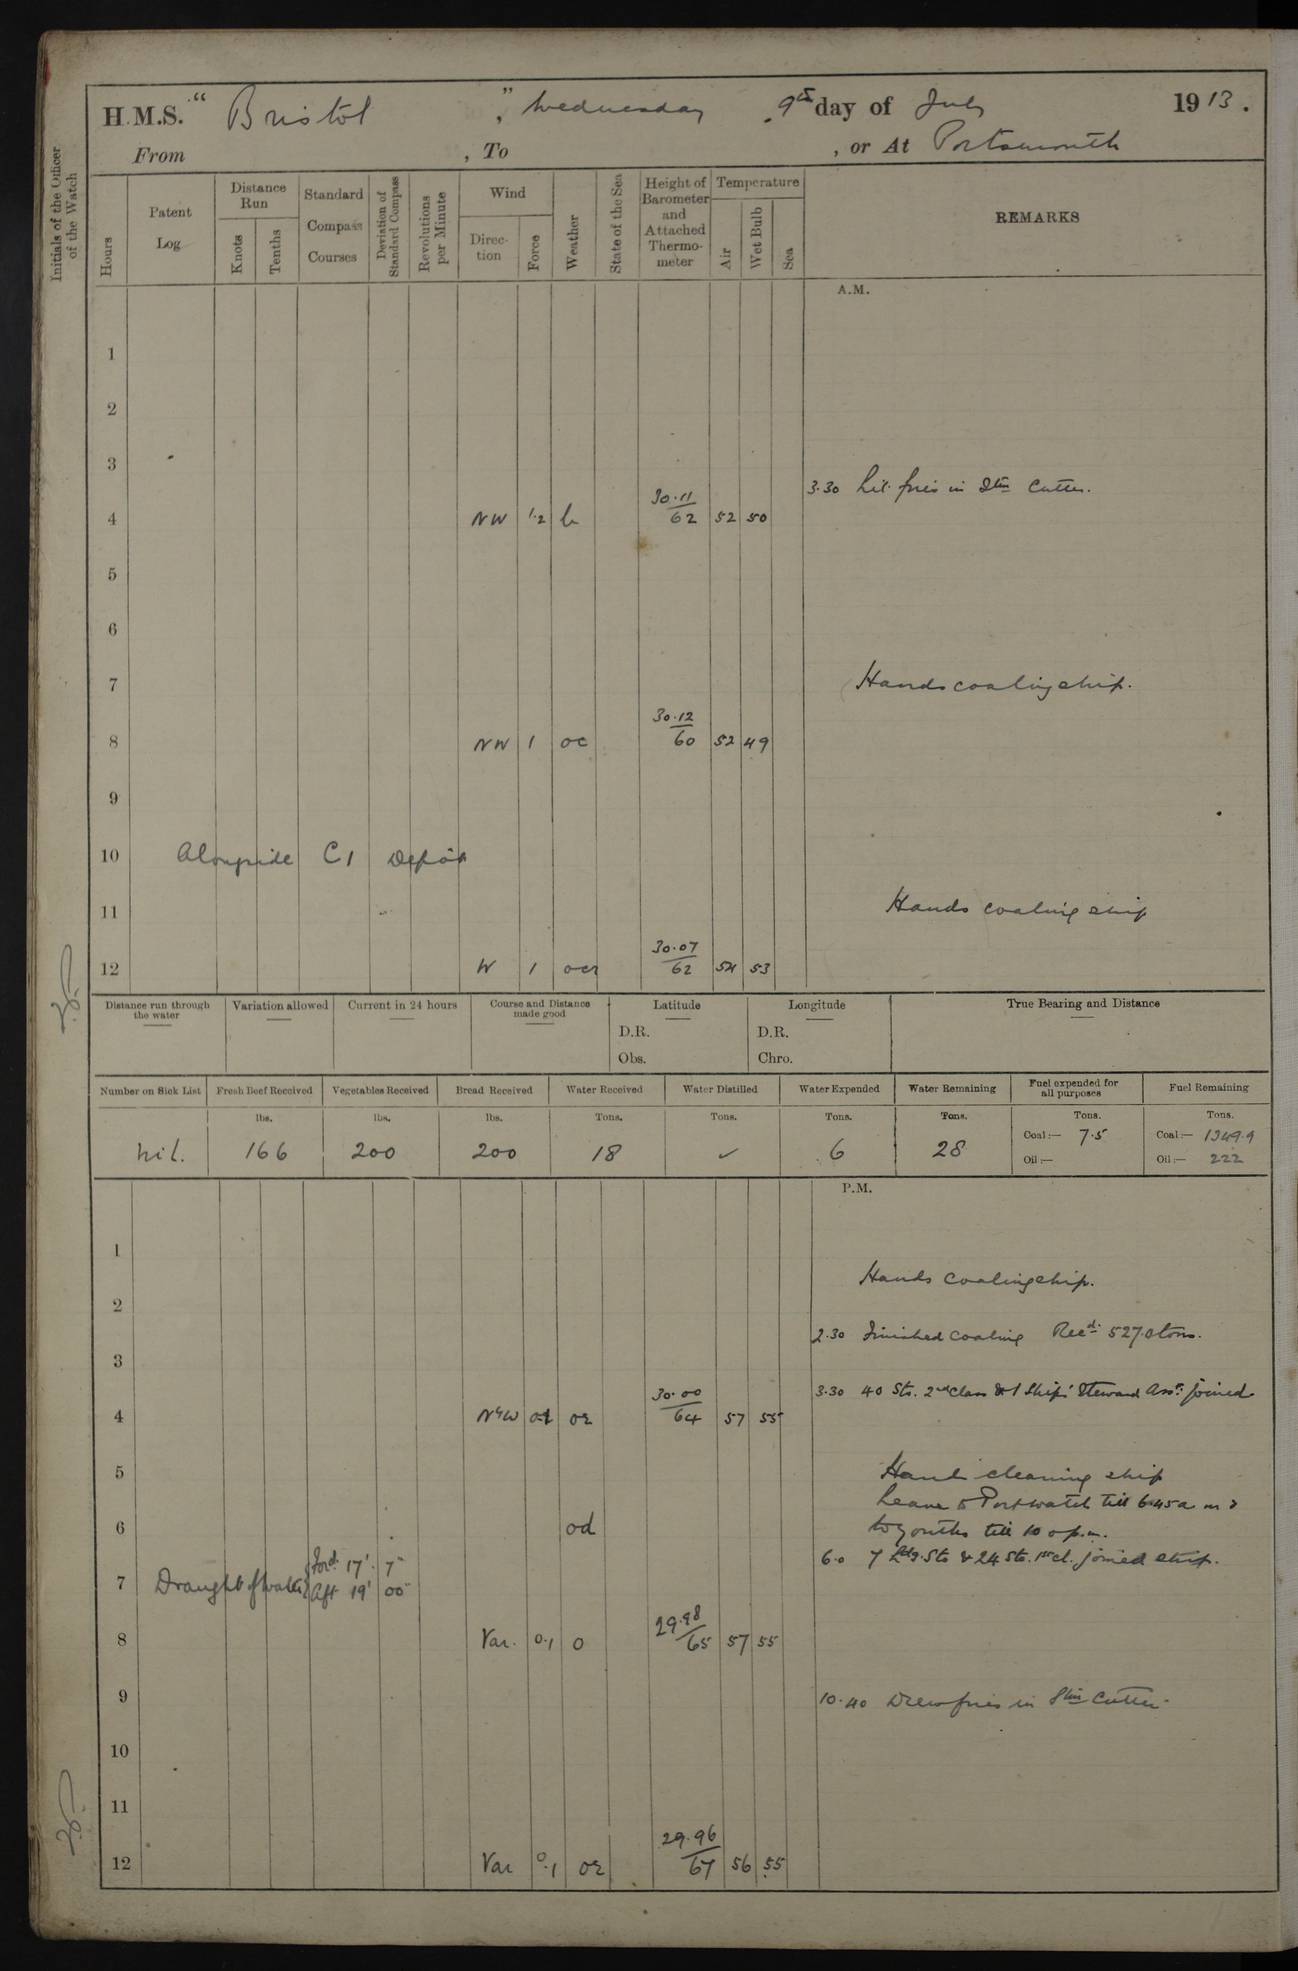 H.M.S. "Bristol", Wednesday, 9th day of July 1913.
From , To , or At Portsmouth
Initials of the Officer of the Watch
Hours
Patent Log
Distance Run
Knots
Tenths
Standard Compass Courses
Deviation of Standard Compass
Revolutions per Minute
Wind
Direction
Force
Weather
State of the Sea
Height of Barometer and Attached Thermometer
Temperature
Air
Wet Bulb
Sea
REMARKS
A.M.
1
2
3
3.30 Lit fires in Stm Cutter.
4 NW 1.2 b 30.11/62 52 50
5
6
7 Hands coaling ship.
8 NW 1 oc 30.12/60 52 49
9
10 Alongside C1 Depôt
11 Hands coaling ship
12 W 1 ocr 30.07/62 54 53
Distance run through the water
Variation allowed
Current in 24 hours
Course and Distance made good
Latitude
D.R.
Obs.
Longitude
D.R.
Chro.
True Bearing and Distance
Number on Sick List Fresh Beef Received Vegetables Received Bread Received Water Received Water Distilled Water Expended Water Remaining Fuel expended for all purposes Fuel Remaining
lbs. lbs. lbs. Tons. Tons. Tons. Tons. Tons. Tons.
nil. 166 200 200 18 ✓ 6 28 Coal:— 7.5 Coal:— 1349.9
Oil:— Oil:— 222
P.M.
1
Hands coaling ship.
2
2.30 Finished coaling Recd. 527.0 tons.
3
3.30 40 Sto. 2nd Class & 1 Ship's Steward Asst. joined
4 or 30.00/64 57 55
5 Hands cleaning ship
Leave to Port watch till 6.45 a m &
6 od to youths till 10 o p.m.
6.0 7 Ldg. Sto & 24 Sto. 1st cl. joined ship.
7 Draught of water { Ford. 17' 7"
Aft 19' 00"
8 Var. 0.1 o 29.98/65 57 55
9 10.40 Drew fires in Stm Cutter.
10
11
12 Var 0.1 or 29.96/67 56 55